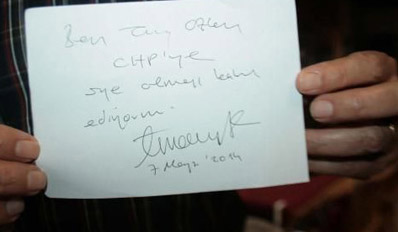 Ben Tarı Özlen
CHP'ye
üye olmayı kabul
ediyorum.
7 Mayıs '2014